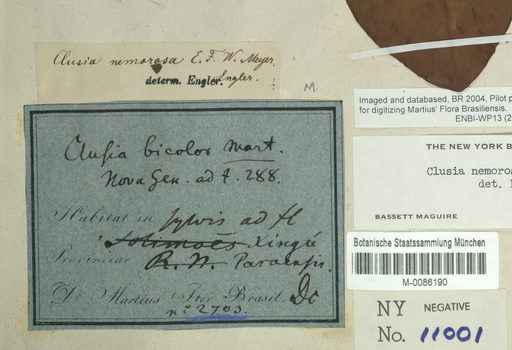 Clusia nemorosa E. F. W. Meyer
determ. Engler. Engler.
M
Clusia bicolor Mart.
Nova Gen. ad t. 288.
Habitat in sylvis ad fl
Solimoës Xingú
Provinciae R. N. Paraensis.
D. Martius Iter Brasil. Dc
n° 2703.
Imaged and databased, BR 2004, Pilot p
for digitizing Martius' Flora Brasiliensis.
ENBI-WP13 (2
THE NEW YORK B
Clusia nemoros
det.
BASSETT MAGUIRE
Botanische Staatssammlung München
M-0086190
NY NEGATIVE
No. 11001